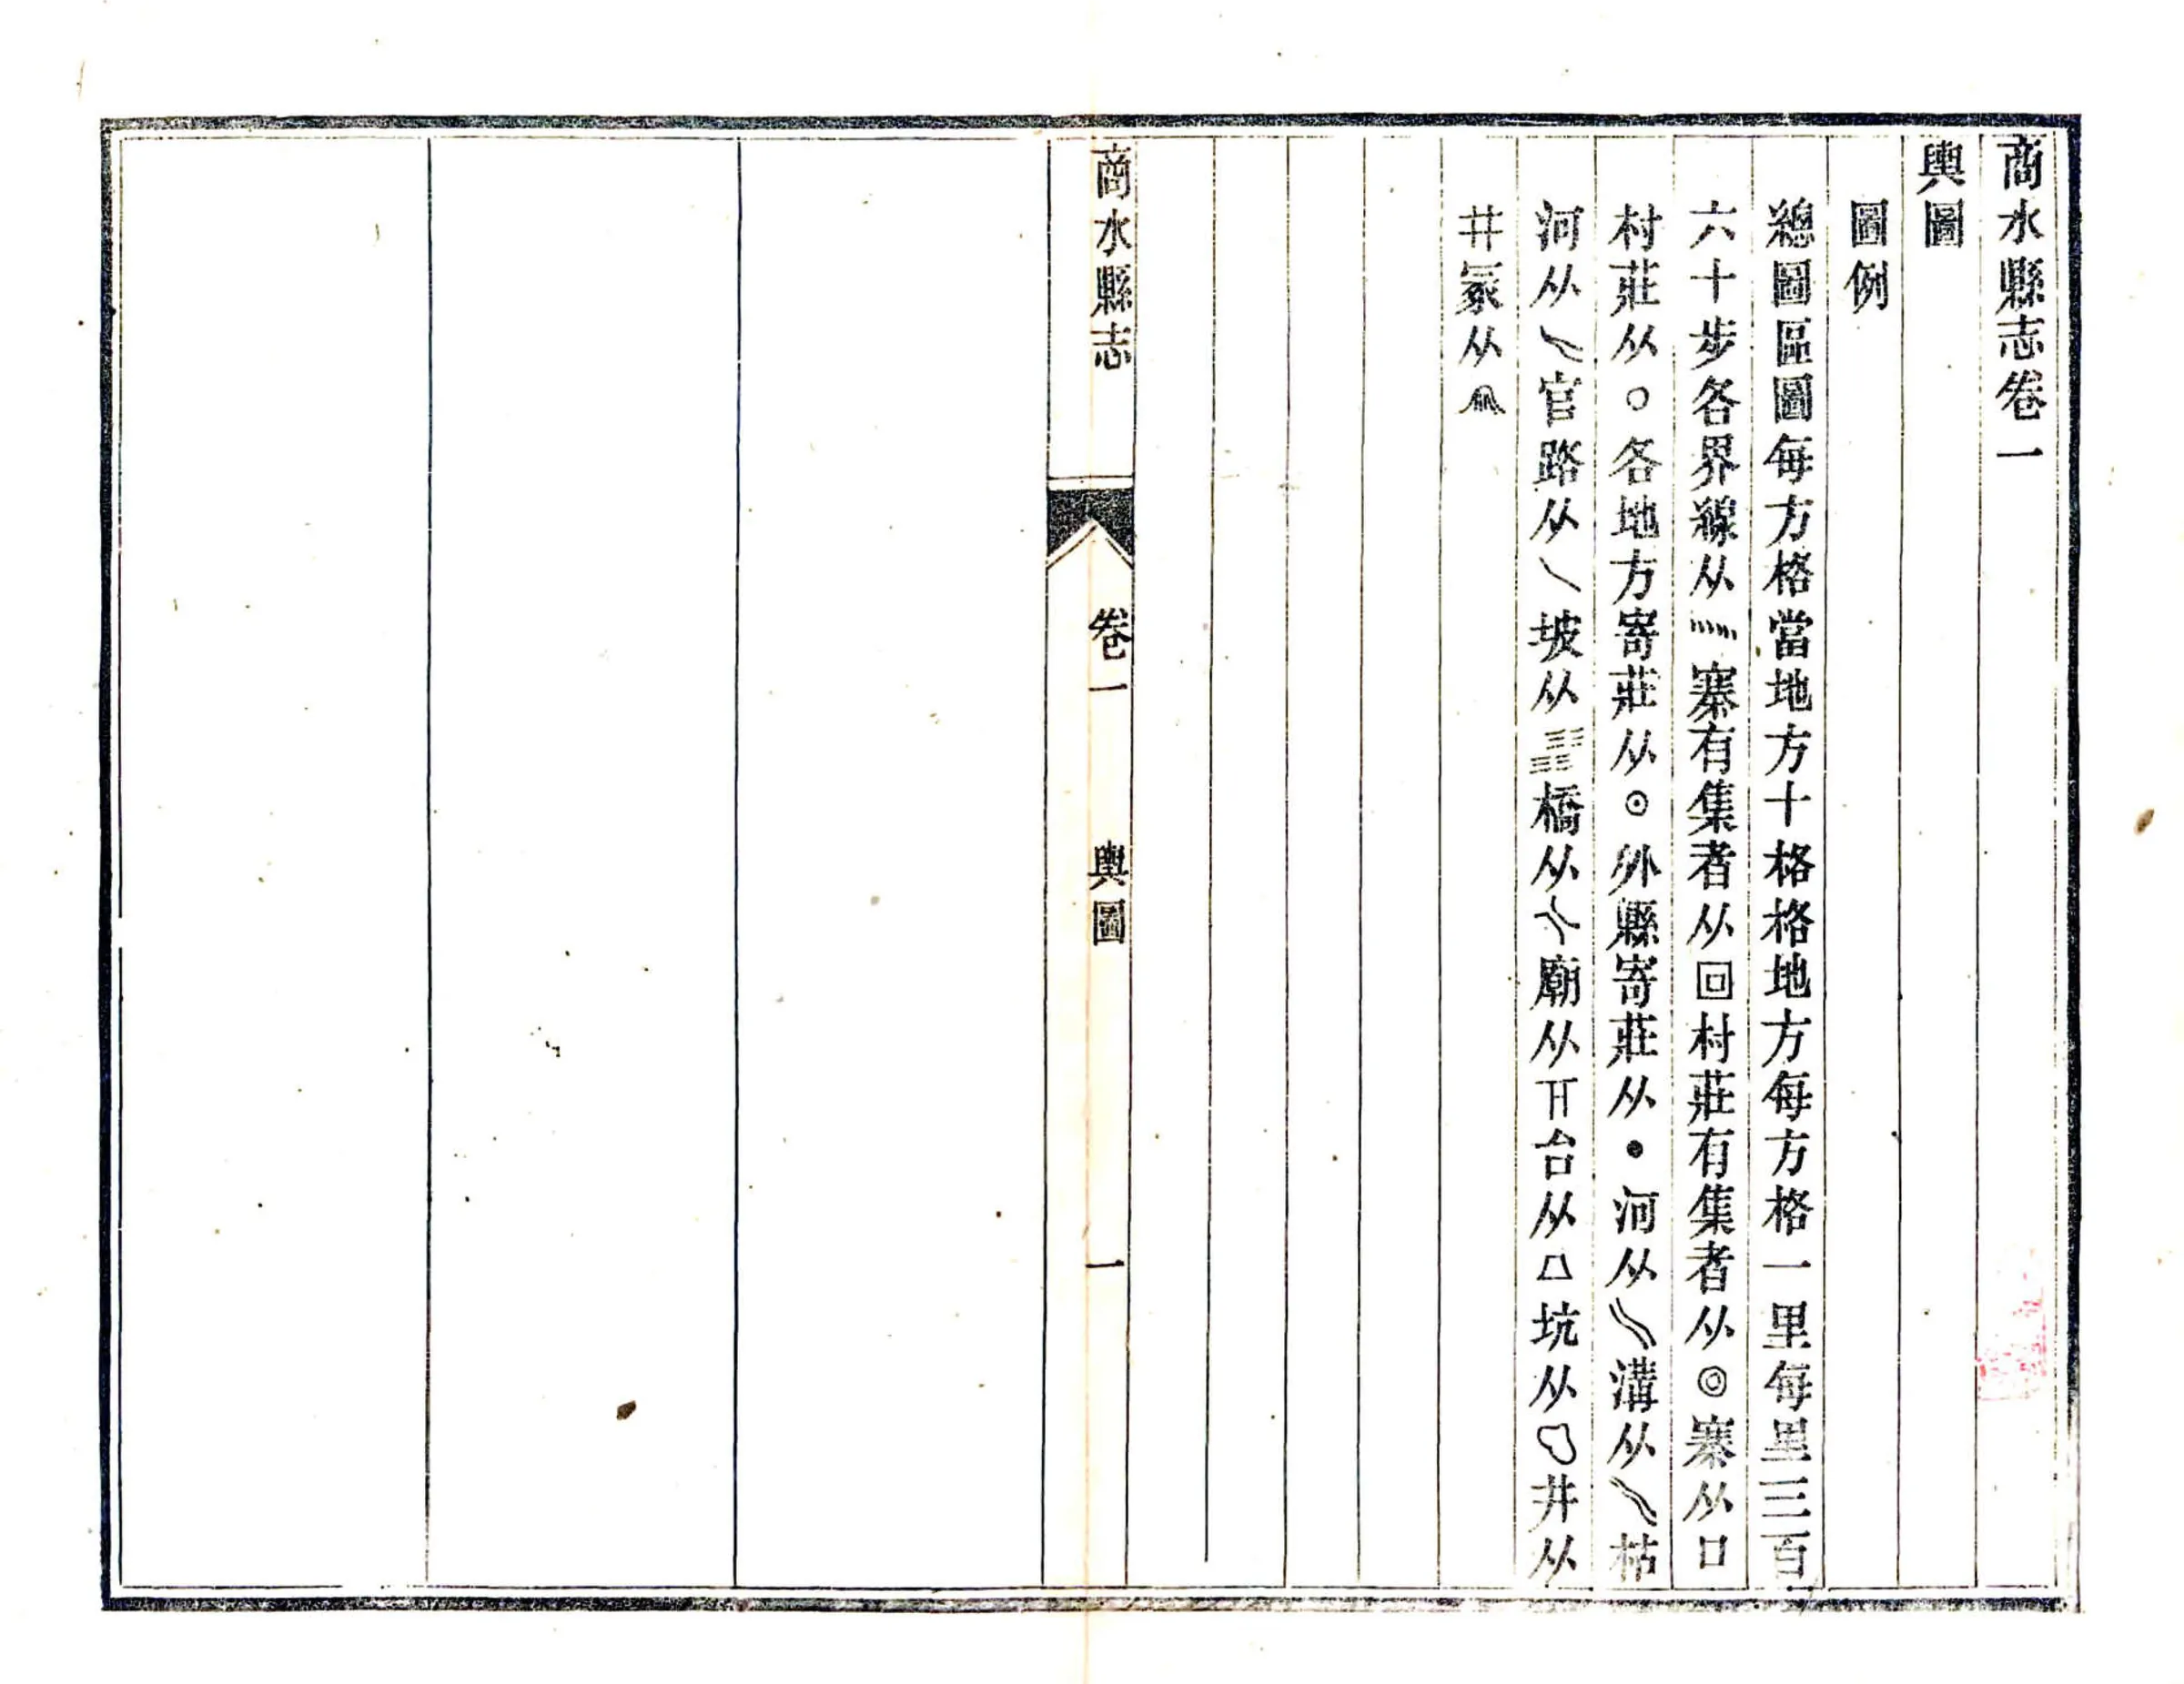 商水縣志卷一
輿圖
圖例
總圖區圖每方格當地方十格格地方每方格一里每里三百
六十步各界線从寨有集者从回村莊有集者从◎寨从口
村莊从○各地方寄莊从⊙外縣寄莊从●河从溝从枯
河从官路从坡从橋从廟从台从坑从井从
井冢从
商水縣志 卷一 輿圖 一